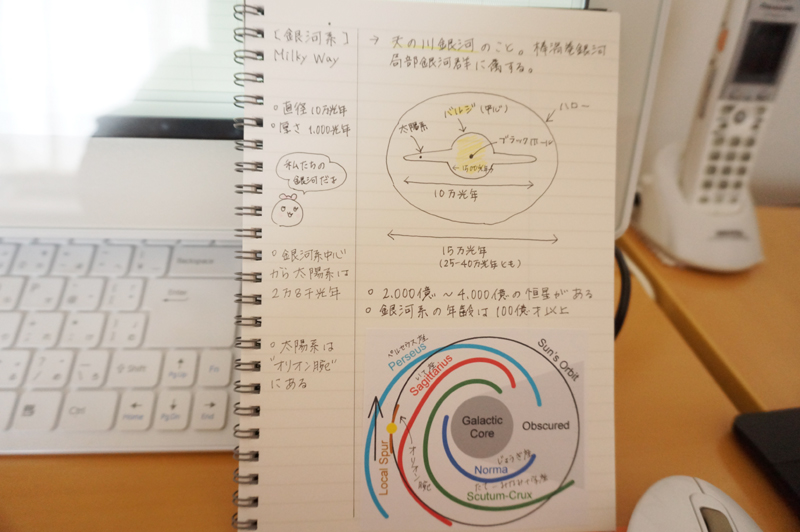 [銀河系]
Milky Way
→ 天の川銀河のこと。棒渦巻銀河
局部銀河群に属する。
○直径10万光年
○厚さ1,000光年
私たちの
銀河だよ
バルジ(中心)
ハロー
太陽系
ブラックホール
10万光年
15万光年
(25~40万光年とも)
○銀河系中心
から太陽系は
2万8千光年
○2,000億~4,000億の恒星がある
○銀河系の年齢は100億才以上
○太陽系は
"オリオン腕"
にある
ペルセウス座
Perseus
いて座
Sagittarius
Sun's Orbit
Galactic
Core
Obscured
Local Spur
オリオン腕
じょうぎ座
Norma
Scutum-Crux
Panasonic
Backspace
Enter
Shift
PgUp
Fn
Ctrl
Home
PgDn
End